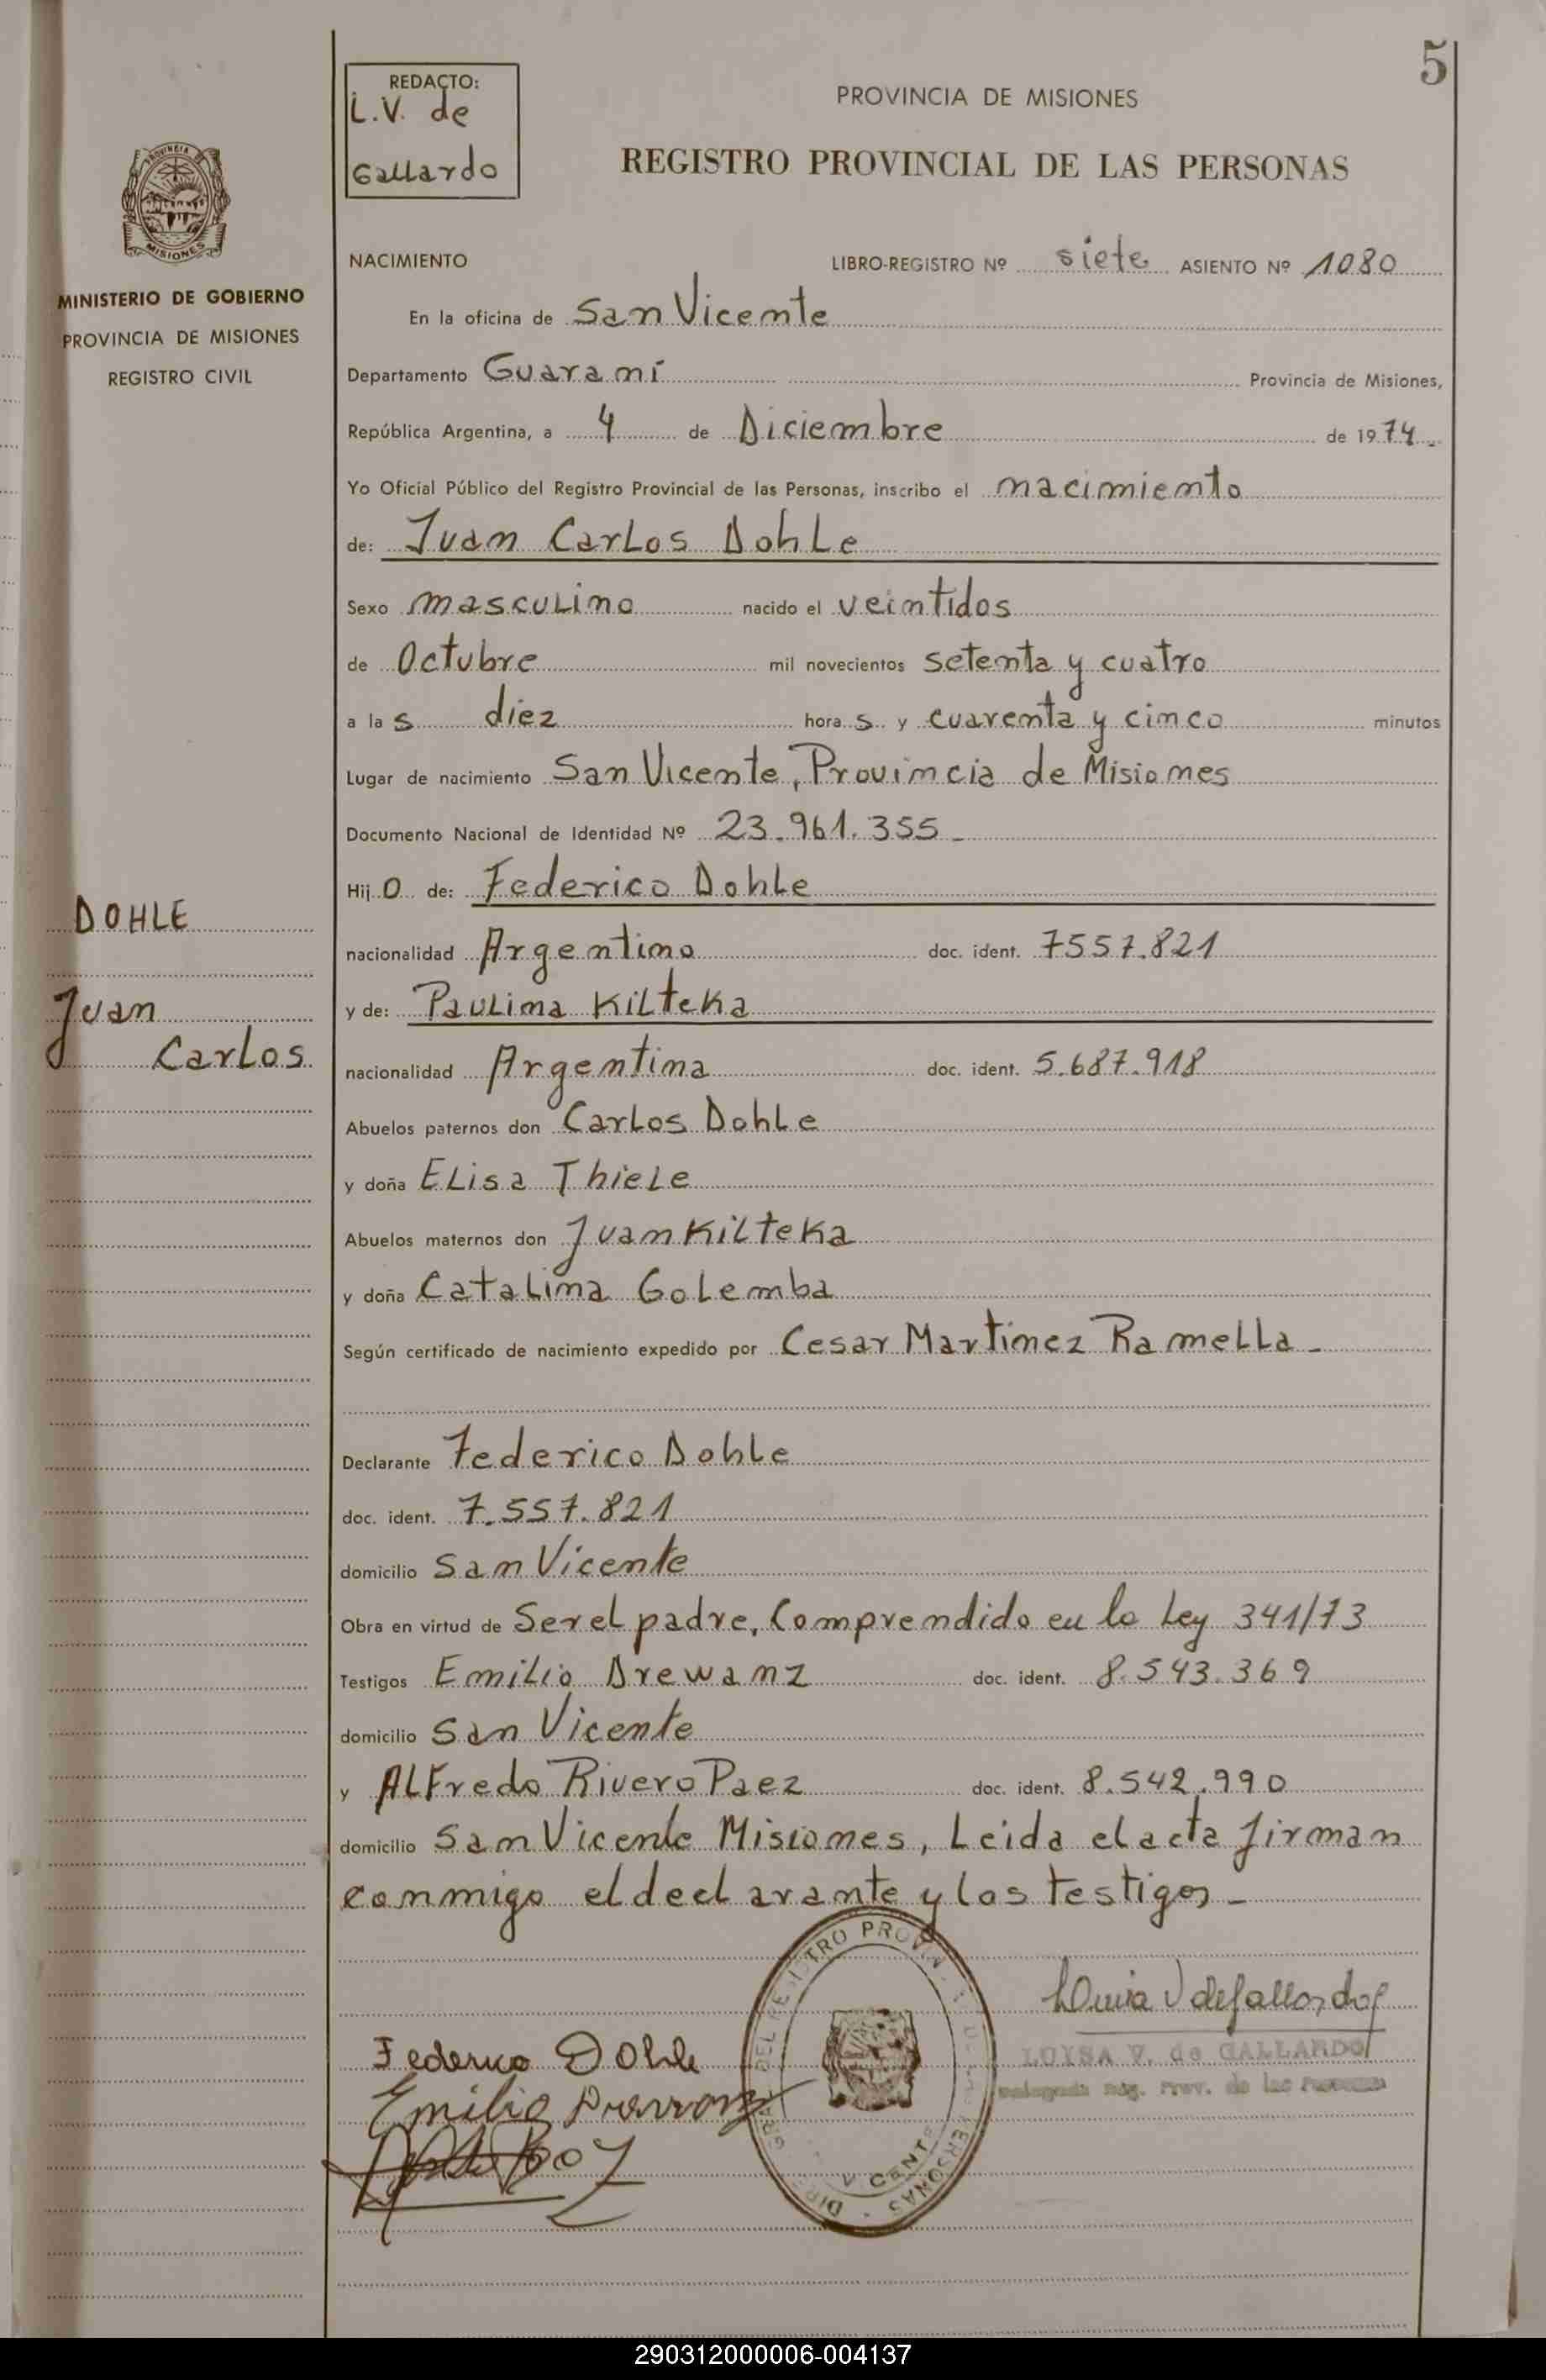 5
REDACTO:
L.V. de
Gallardo
PROVINCIA DE MISIONES
REGISTRO PROVINCIAL DE LAS PERSONAS
PROVINCIA DE
MISIONES
MINISTERIO DE GOBIERNO
PROVINCIA DE MISIONES
REGISTRO CIVIL
NACIMIENTO LIBRO-REGISTRO Nº siete ASIENTO Nº 1080
En la oficina de San Vicente
Departamento Guaraní Provincia de Misiones,
República Argentina, a 4 de Diciembre de 1974.-
Yo Oficial Público del Registro Provincial de las Personas, inscribo el nacimiento
de: Juan Carlos Dohle
Sexo masculino nacido el veintidos
de Octubre mil novecientos setenta y cuatro
a las diez horas y cuarenta y cinco minutos
Lugar de nacimiento San Vicente, Provincia de Misiones
Documento Nacional de Identidad Nº 23.961.355-
Hijo de: Federico Dohle
DOHLE
nacionalidad Argentino doc. ident. 7557.821
Juan
y de: Paulina Kilteka
Carlos
nacionalidad Argentina doc. ident. 5.687.918
Abuelos paternos don Carlos Dohle
y doña Elisa Thiele
Abuelos maternos don Juan Kilteka
y doña Catalina Golemba
Según certificado de nacimiento expedido por Cesar Martinez Ramella-
Declarante Federico Dohle
doc. ident. 7.557.821
domicilio San Vicente
Obra en virtud de Ser el padre, Comprendido en la Ley 341/73
Testigos Emilio Drewanz doc. ident. 8.543.369
domicilio San Vicente
y Alfredo Rivero Paez doc. ident. 8.542.990
domicilio San Vicente Misiones, Leida el acta firman
conmigo el declarante y los testigos-
Federico Dohle
Emilio
LUISA V. de GALLARDO
Delegada Reg. Prov. de las Personas
290312000006-004137